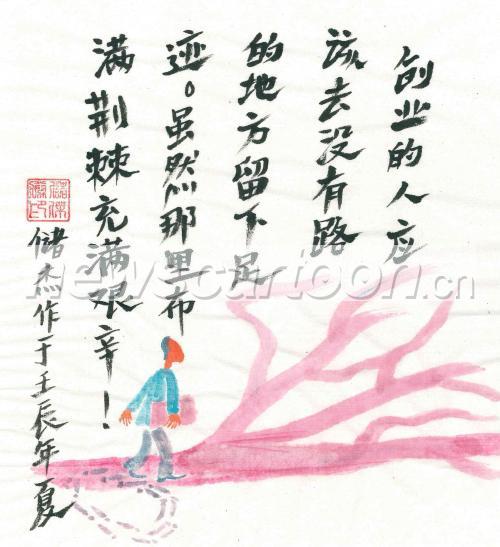 创业的人应
该去没有路
的地方留下足
迹。虽然那里布
满荆棘充满艰辛！
储杰作于壬辰年夏
newscartoon.cn